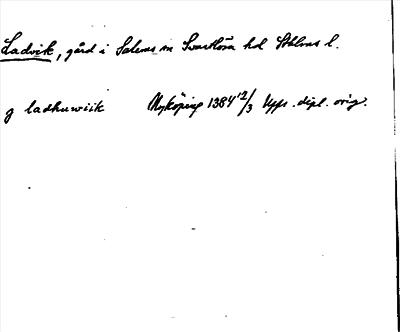 Ladvik, gård i Salems sn Svartlösa hd Sthlms l.
g ladhuwiik Nyköping 1384 12/3 Upps. dipl. orig.